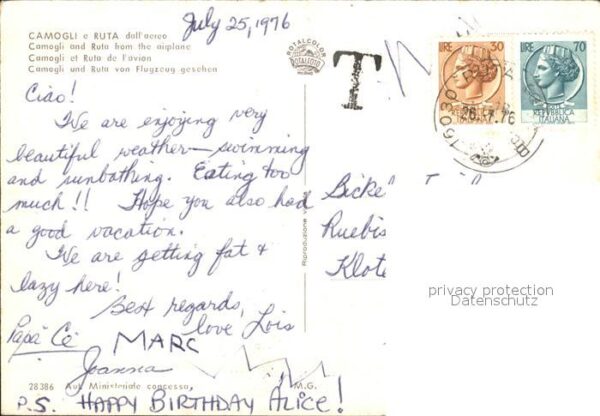 July 25, 1976
CAMOGLI e RUTA dall'aereo
Camogli and Ruta from the airplane
Camogli et Ruta de l'avion
Camogli und Ruta von Flugzeug gesehen
ROTALCOLOR
ROTALFOTO
T
LIRE 30
REPUBBLICA
ITALIANA
LIRE 70
REPUBBLICA
ITALIANA
16030
26.7.76
Ciao!
We are enjoying very
beautiful weather—swimming
and sunbathing. Eating too
much!! Hope you also had
a good vacation.
We are getting fat &
lazy here!
Best regards,
love Lois
Papà Cé MARC
Joanna
Ruebis
Klote
privacy protection
Datenschutz
Riproduzione
28386 Aut. Ministeriale concessa, M.G.
P.S. HAPPY BIRTHDAY ALICE!